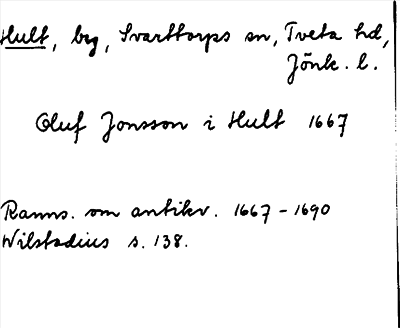 Hult, by, Svarttorps sn, Tveta hd,
Jönk. l.
Oluf Jonsson i Hult 1667
Ranns. om antikv. 1667-1690
Wilstadius s. 138.